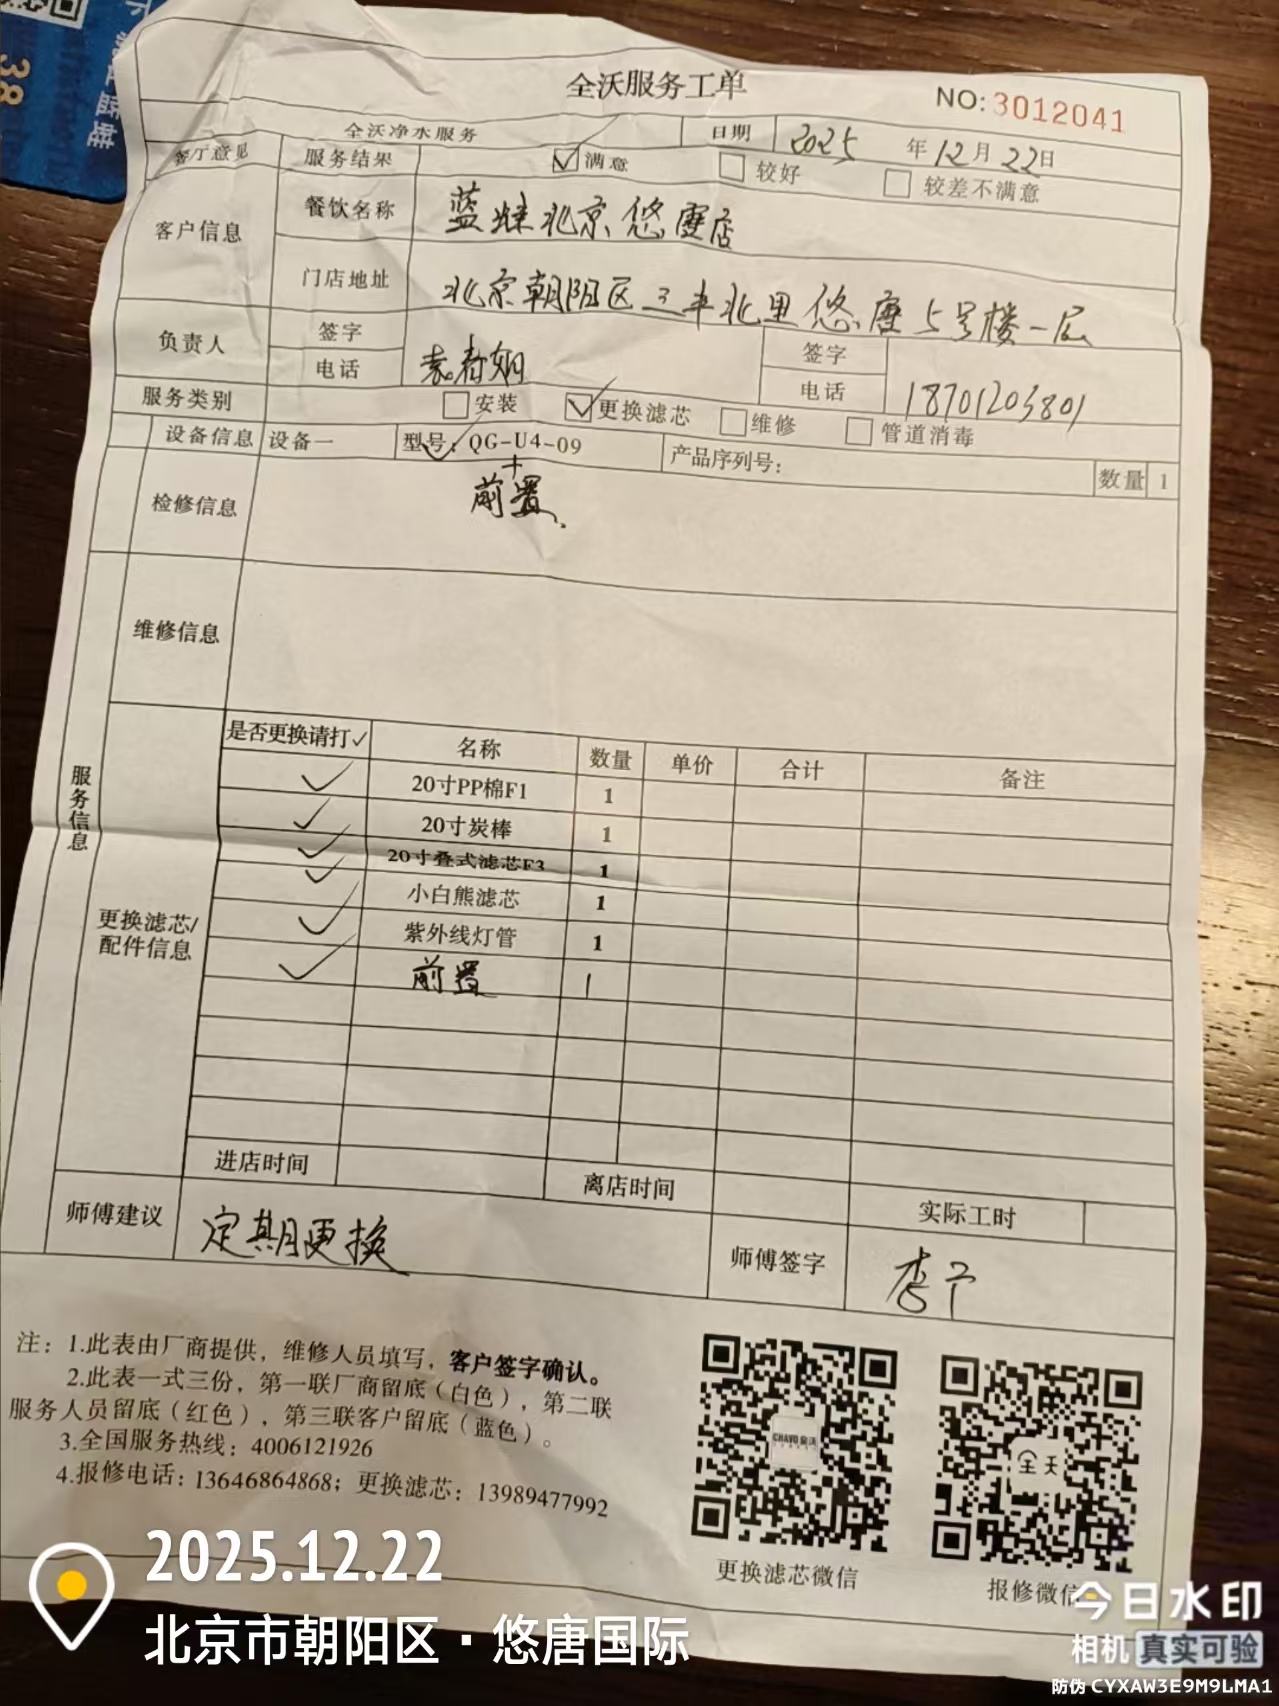 38
全沃服务工单
NO: 3012041
全沃净水服务 日期 2025 年 12 月 22 日
客厅意见 服务结果 ☑ 满意 □ 较好 □ 较差不满意
客户信息 餐饮名称 蓝蛙北京悠唐店
门店地址 北京朝阳区三丰北里悠唐5号楼一层
负责人 签字 签字
电话 电话 18701203801
服务类别 □ 安装 ☑ 更换滤芯 □ 维修 □ 管道消毒
设备信息 设备一 型号: QG-U4-09 产品序列号: 数量 1
+
前置
检修信息
维修信息
服务信息
更换滤芯/
配件信息
是否更换请打✓ 名称 数量 单价 合计 备注
✓ 20寸PP棉F1 1
✓ 20寸炭棒 1
✓ 20寸叠式滤芯F3 1
✓ 小白熊滤芯 1
✓ 紫外线灯管 1
✓ 前置 1
进店时间 离店时间 实际工时
师傅建议 定期更换 师傅签字
注: 1.此表由厂商提供, 维修人员填写, 客户签字确认。
2.此表一式三份, 第一联厂商留底(白色), 第二联
服务人员留底(红色), 第三联客户留底(蓝色)。
3.全国服务热线: 4006121926
4.报修电话: 13646864868; 更换滤芯: 13989477992
全天
更换滤芯微信
报修微信
2025.12.22
北京市朝阳区·悠唐国际
今日水印
相机 真实可验
防伪 CYXAW3E9M9LMA1